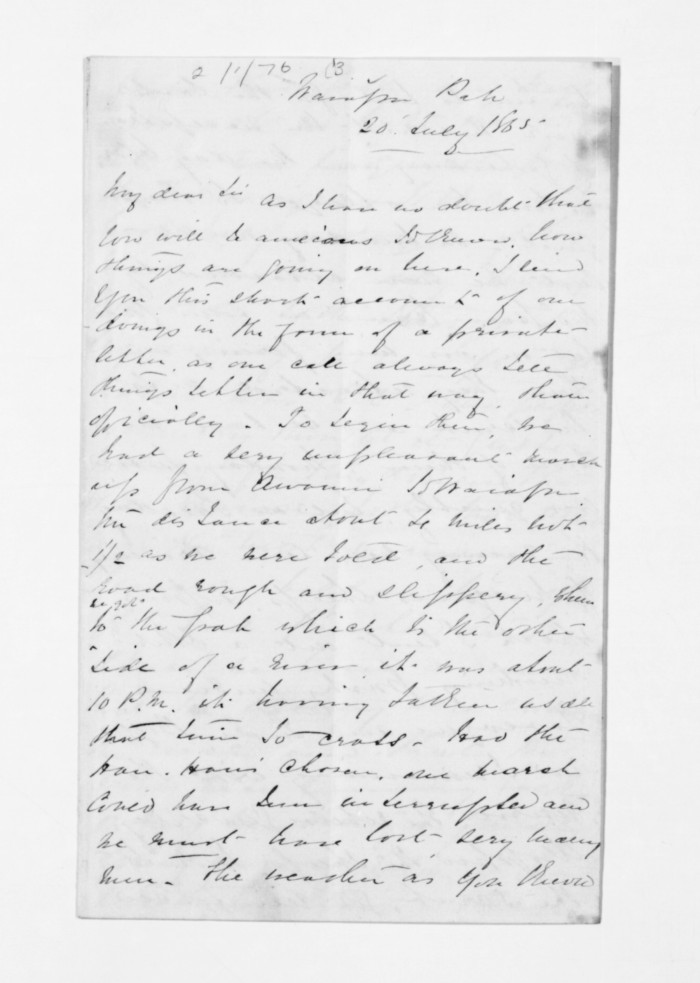 2/1/76 (3
Waiapu Pah
20 July 1865
My dear Sir as I have no doubt that
you will be anxious to know how
things are going on here, I send
you this short account of our
doings in the form of a private
letter, as one can always tell
things better in that way than
officially. To begin then, we
had a very unpleasant march
up from Awanui to Waiapu
the distance about 4 miles not
1 1/2 as we were told, and the
road rough and slippery, when
to the pah which is the other
side of a river it was about
10 P.M. it having taken us all
that time to cross. Had the
Hau. Haus chosen, our march
could have been interrupted and
we must have lost very many
men. The weather as you know